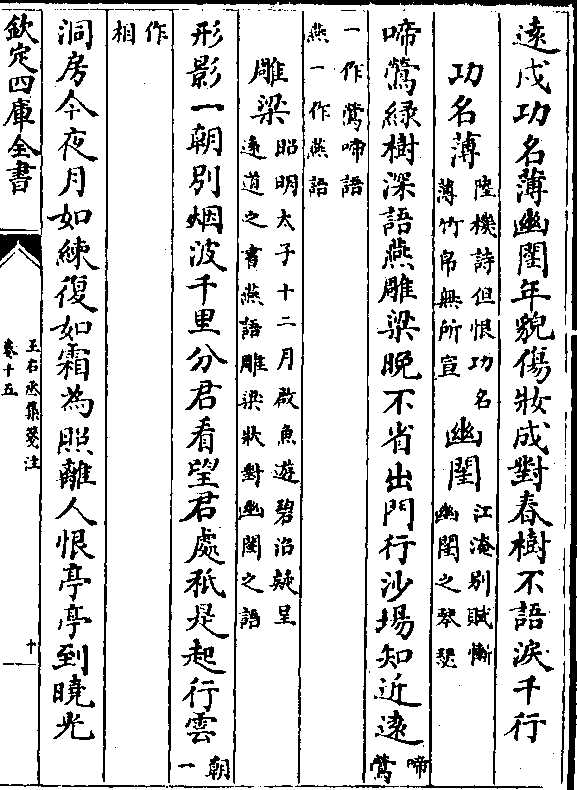 遠戍功名薄幽閨年貌傷妝成對春樹不語淚千行
功名薄
陸機詩但恨功名
薄竹帛無所宣
幽閨
江淹别賦慚
幽閨之琴瑟
啼鶯緑樹深語燕雕梁晚不省出門行沙場知近遠
啼
鶯
一作鶯啼語
燕一作燕語
雕梁
昭明太子十二月啟魚遊碧沼疑呈
遠道之書燕語雕梁狀對幽閨之語
形影一朝別烟波千里分君看望君處秖是起行雲
朝
一
作
相
洞房今夜月如練復如霜為照離人恨亭亭到曉光
欽定四庫全書
王右丞集箋注
卷十五
十